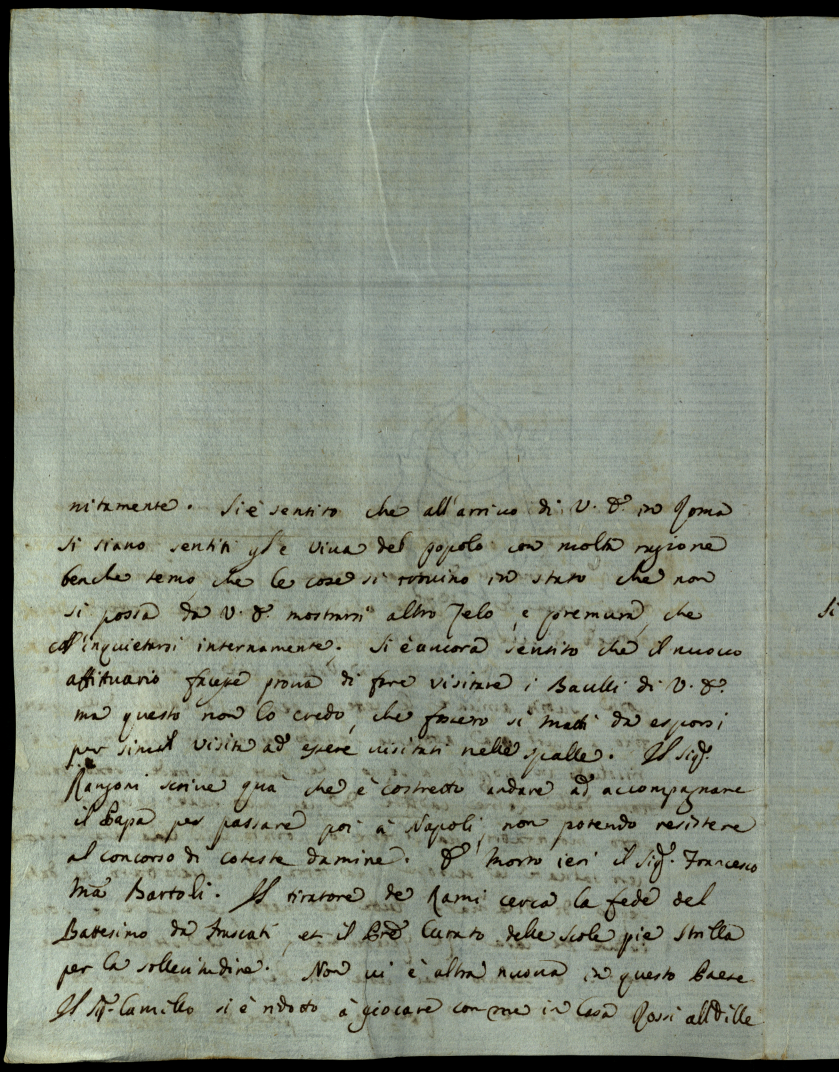 nitamente. Si è sentito che all'arrivo di V. E. in Roma
si siano sentiti gl'e viva del popolo con molta ragione
benche temo, che le cose si trovino in stato che non
si possa da V. E. mostrarsi altro zelo, e premura, che
coll'inquietarsi internamente. Si è ancora sentito che il nuovo
affittuario facesse prova di fare visitare i Baulli di V. E.
ma questo non lo credo, che fossero si matti da esporsi
per simil visita ad essere visitati nelle spalle. Il Sigr.
Rangoni scrive quà che è costretto andare ad accompagnare
il Papa per passare poi à Napoli, non potendo resistere
al concorso di coteste damine. È morto ieri il Sigr. Francesco
Ma Bartoli. Il tiratore de Rami cerca la fede del
Battesimo da Frascati, et il Pre Curato delle scole pie strilla
per la sollecitudine. Non vi è altra nuova in questo Paese
Il Sigr. Camillo si è ridotto à giocare con me in Casa Rossi all'
Si